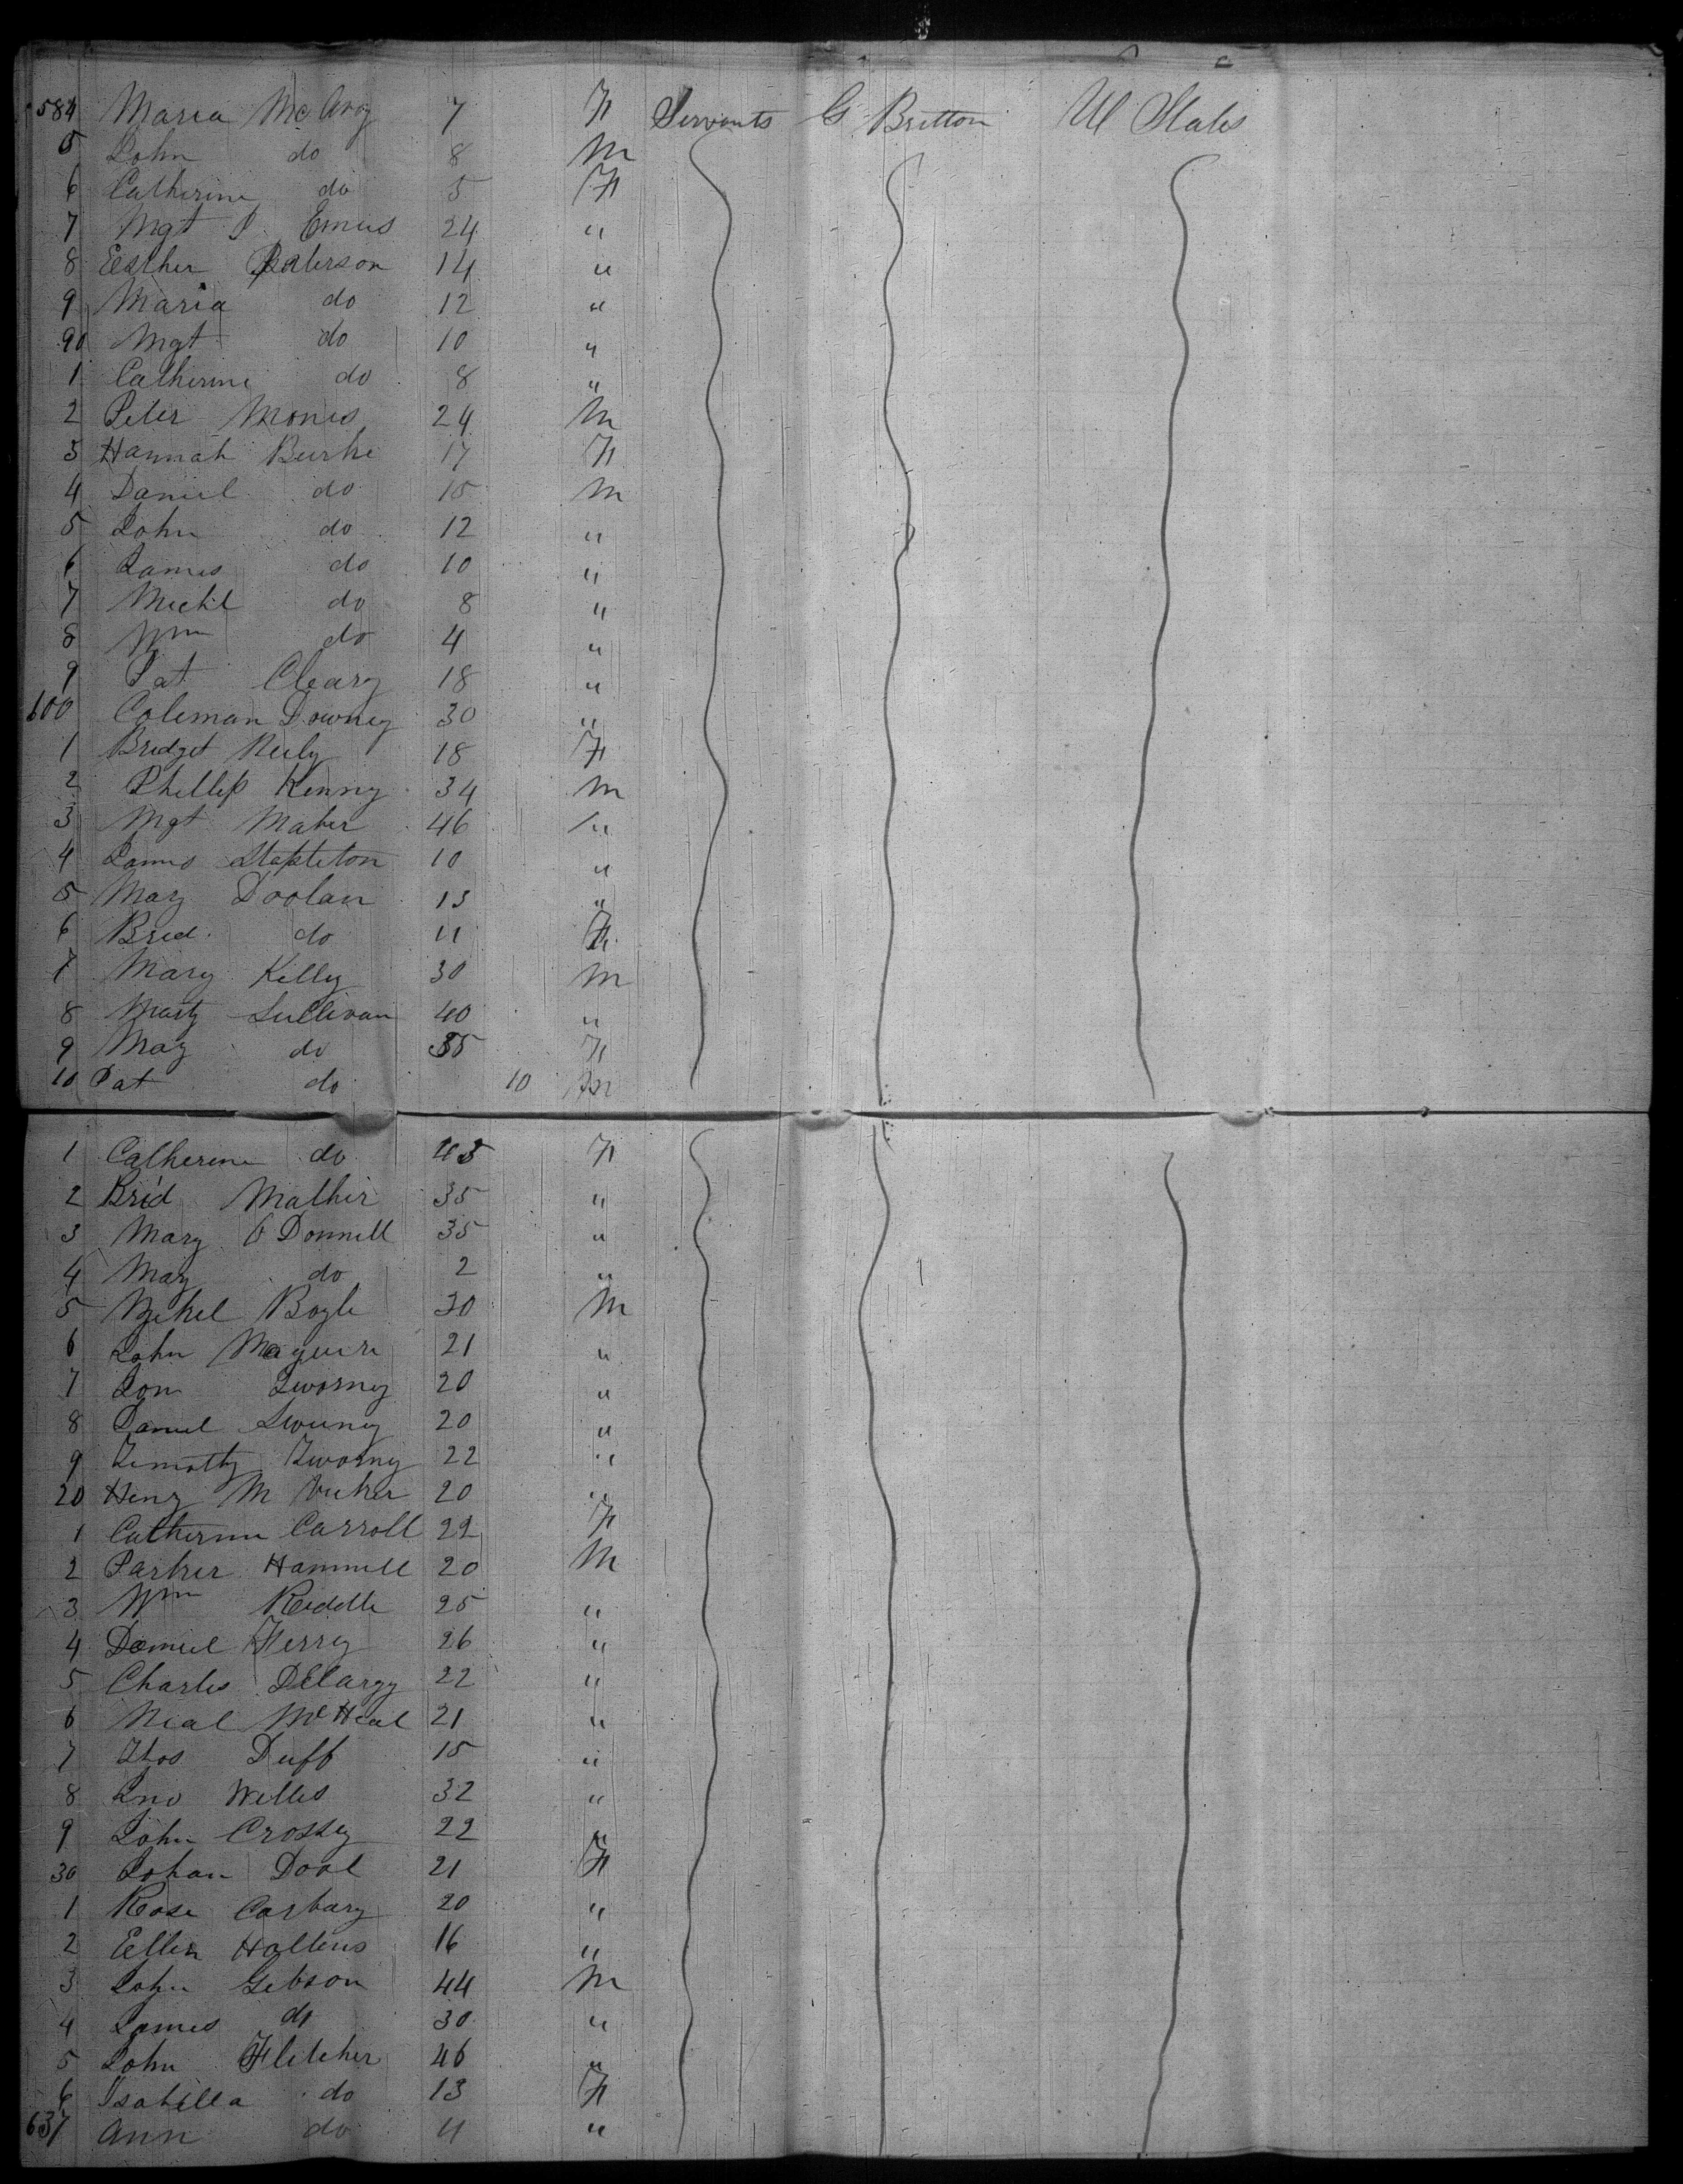 584 Maria McAvoy 7 F Servants G Britton U States
5 John do 8 M
6 Catherine do 5 F
7 Mgt 24 "
8 Esther Paterson 14 "
9 Maria do 12 "
90 Mgt do 10 "
1 Catherine do 8 "
2 Peter 24 M
3 Hannah Burke 17 F
4 Daniel do 15 M
5 John do 12 "
6 James do 10 "
7 Michl do 8 "
8 Wm do 4 "
9 Pat Cleary 18 "
600 Coleman Downey 30 "
1 Bridget Reily 18 F
2 Phillip Kenny 34 M
3 Mgt Maher 46 "
4 James Stapleton 10 "
5 Mary Doolan 13 "
6 Brid do 11 F
7 Mary Kelly 30 M
8 Sullivan 40 "
9 May do 35 F
10 Pat do 10 M
1 Catherine do 45 F
2 Brid Mather 35 "
3 Mary O Donnell 35 "
4 May do 2 "
5 Michel Boyle 30 M
6 John Maguire 21 "
7 Jon Twomey 20 "
8 Daniel Sweeney 20 "
9 Timothy Twomey 22 "
20 Henry 20 "
1 Catherine Carroll 22 F
2 Parker Hammill 20 M
3 Wm Riddle 25 "
4 Daniel Ferry 26 "
5 Charles Delargy 22 "
6 Neal 21 "
7 Thos Duff 15 "
8 Jno Willis 32 "
9 John Crossey 22 "
30 Johan Dool 21 F
1 Rose Carbary 20 "
2 Ellen 16 "
3 John Gibson 44 M
4 James do 30 "
5 John Fletcher 46 "
6 Isabella do 13 F
637 Ann do 11 "